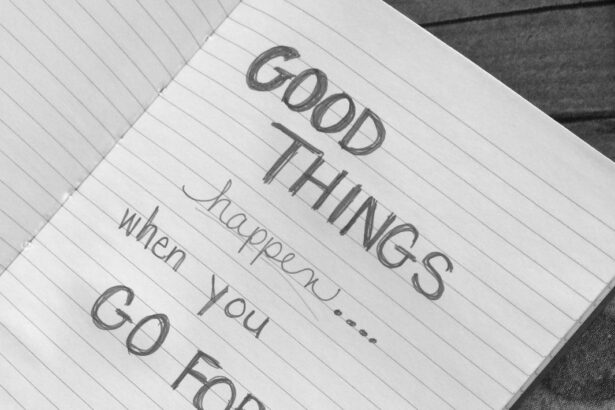 GOOD
THINGS
happen....
when you
GO FOR